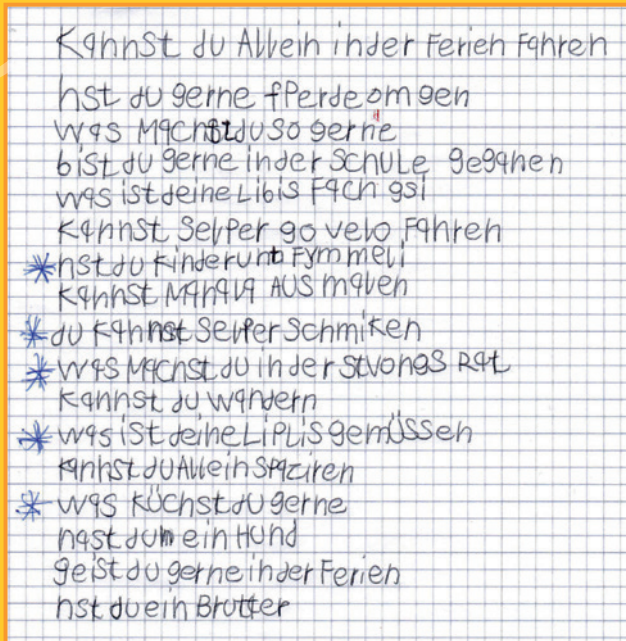 Kannst du Allein inder Ferien Fahren
hst du gerne fPerde om gen
was Machst du so gerne
bist du gerne inder Schule gegahen
was ist deine Libis Fach gsi
Kannst Selper go velo Fahren
*hst du Kinder unt Fymmeli
Kannst Manala AUS malen
*du Kannst Selper Schmiken
*was Machst du in der Stvongs Rat
Kannst du wandern
*was ist deine LiPLis gemüssen
Kannst du Allein Spaziren
*was Küchst du gerne
hast du ein Hund
geist du gerne in der Ferien
hst du ein Brutter